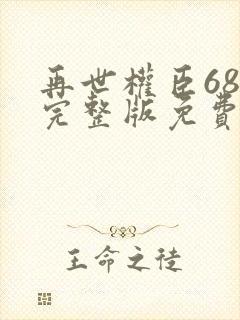 再世權臣68
完整版免費
王命之徒